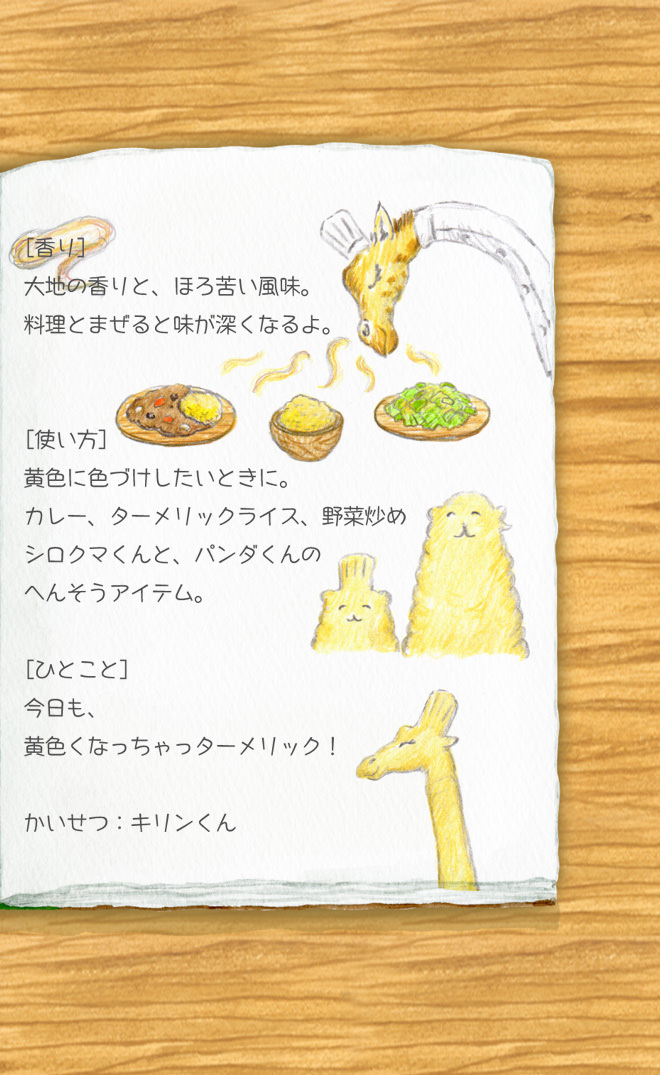 [香り]
大地の香りと、ほろ苦い風味。
料理とまぜると味が深くなるよ。
[使い方]
黄色に色づけしたいときに。
カレー、ターメリックライス、野菜炒め
シロクマくんと、パンダくんの
へんそうアイテム。
[ひとこと]
今日も、
黄色くなっちゃっターメリック！
かいせつ：キリンくん